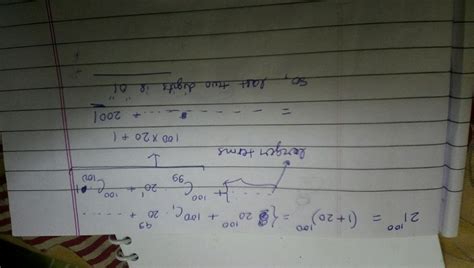 21^100 = (1+20)^100 = { 20^100 + 100C1 20^99 + ......
......+ 100C99 20^1 + 100C100
larger terms
100 x 20 + 1
= - - - - - ...... + 2001
So, last two digits is 01